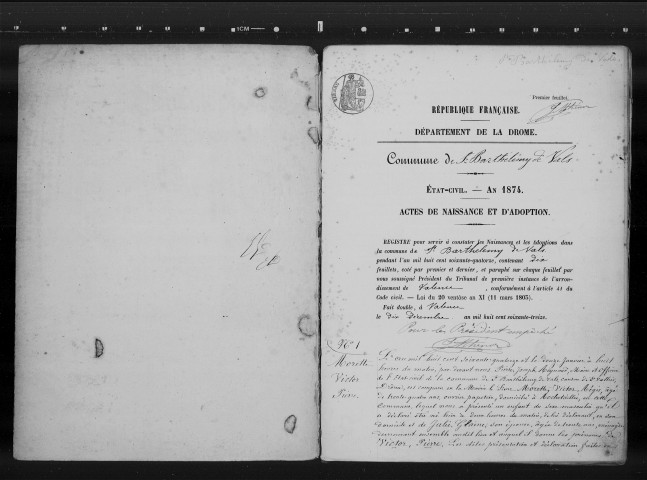 St Barthélemy de Vals
Premier feuillet.
RÉPUBLIQUE FRANÇAISE.
DÉPARTEMENT DE LA DROME.
Commune de St Barthélemy de Vals
ÉTAT-CIVIL. — AN 1874.
ACTES DE NAISSANCE ET D'ADOPTION.
REGISTRE pour servir à constater les Naissances et les Adoptions dans
la commune de St Barthélemy de Vals
pendant l'an mil huit cent soixante-quatorze, contenant dix
feuillets, coté par premier et dernier, et paraphé sur chaque feuillet par
nous soussigné Président du Tribunal de première instance de l'arron-
dissement de Valence, conformément à l'article 41 du
Code civil. — Loi du 20 ventôse an XI (11 mars 1803).
Fait double, à Valence
le dix Décembre an mil huit cent soixante-treize.
Pour le Président empêché
No 1
Morette
Victor
Pierre.
L'an mil huit cent soixante-quatorze et le douze Janvier à huit
heures du matin, par devant nous Joseph Maire et officier
de l'état-civil de la commune de St Barthélemy de Vals canton de St Vallier
est comparu en la Mairie le Sieur Morette, Victor, âgé
de trente-quatre ans, ouvrier papetier, domicilié à en cette
Commune, lequel nous a présenté un enfant du sexe masculin qu'il
a déclaré être né hier de deux heures du matin, de lui déclarant, en son
domicile et de Julie son épouse, âgée de trente ans, ménagère
demeurant ensemble audit lieu et auquel il donne les prénoms de
Victor, Pierre. Les dites présentation et déclaration faites en